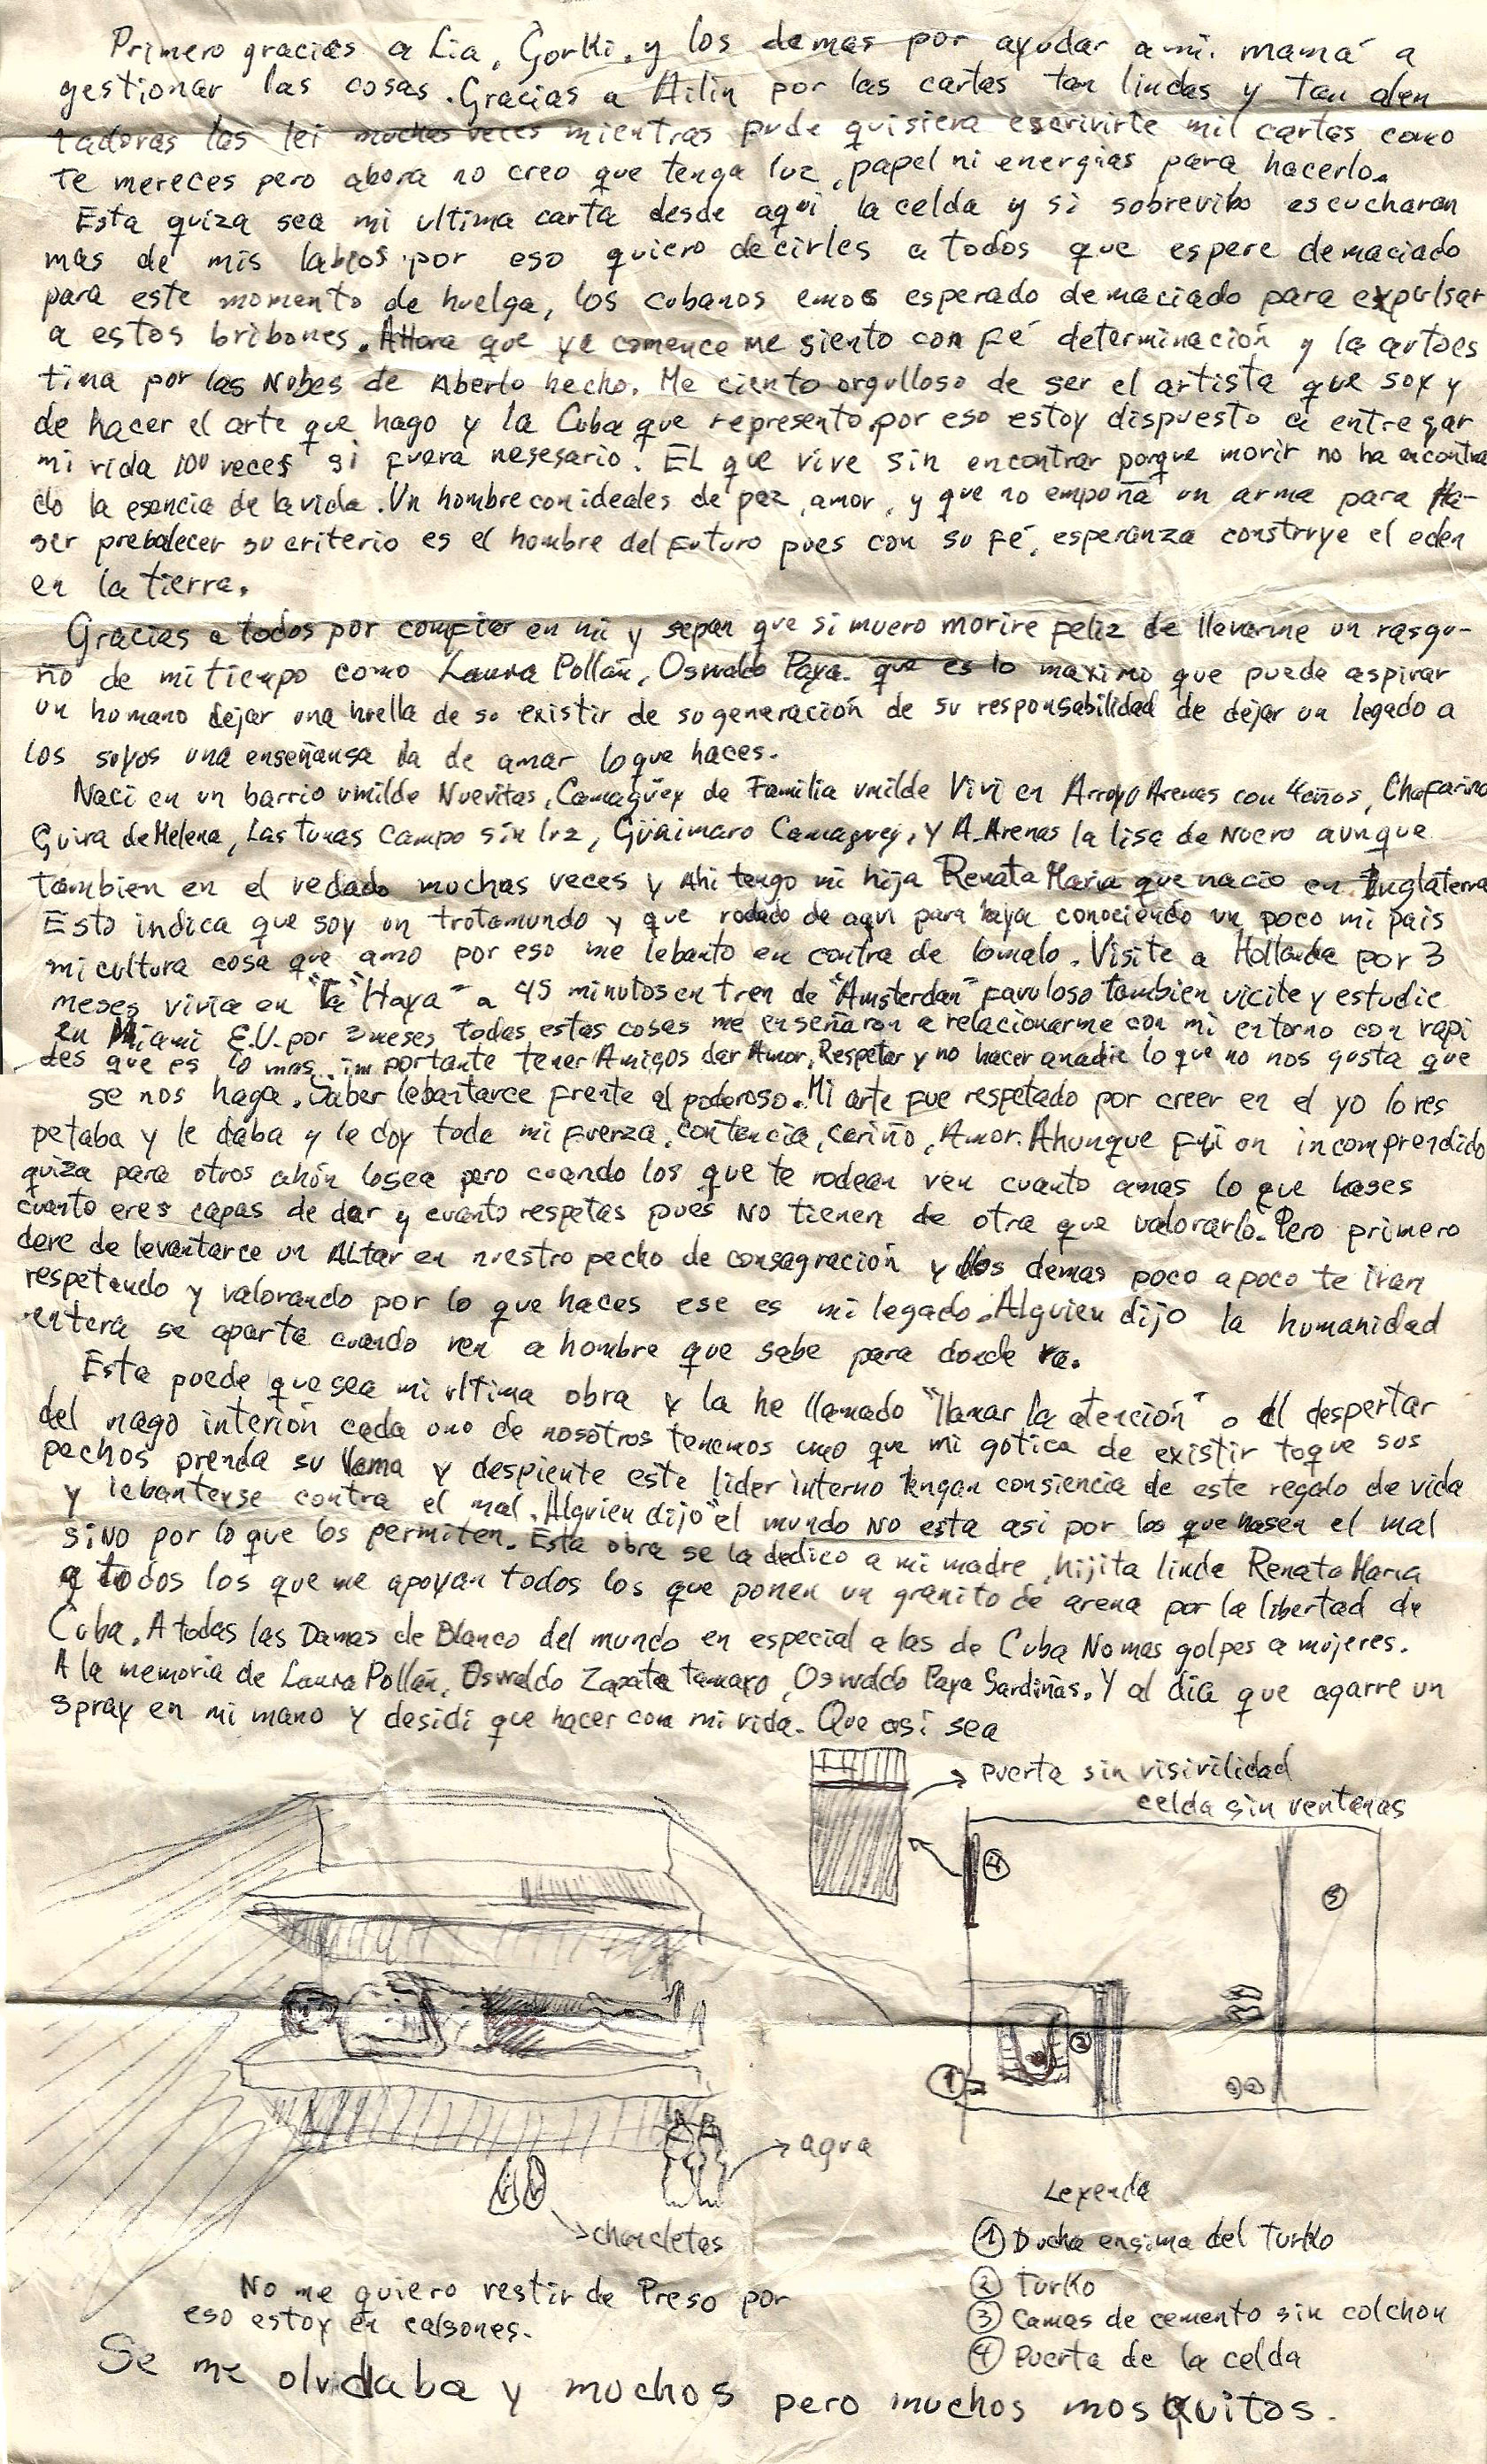 Primero gracias a Lia, Gorki, y los demas por ayudar a mi mamá a
gestionar las cosas. Gracias a Ailin por las cartas tan lindas y tan alen
tadoras las lei muchas veces mientras pude quisiera escrivirte mil cartas como
te mereces pero ahora no creo que tenga luz, papel ni energias para hacerlo.
Esta quiza sea mi ultima carta desde aqui la celda y si sobrevibo escucharan
mas de mis labios por eso quiero decirles a todos que espere demaciado
para este momento de huelga, los cubanos emos esperado demaciado para expulsar
a estos bribones. Ahora que ya comence me siento con Fé determinación y la autoes
tima por las Nubes de Aberlo hecho. Me ciento orgulloso de ser el artista que soy y
de hacer el arte que hago y la Cuba que represento por eso estoy dispuesto a entregar
mi vida 100 veces si fuera nesesario. EL que vive sin encontrar porque morir no ha encontra
do la esencia de la vida. Un hombre con ideales de paz, amor, y que no empoña un arma para Ha-
ser prebalecer su criterio es el hombre del Futuro pues con su Fé, esperanza construye el eden
en la tierra.
Gracias a todos por comfiar en mi y sepan que si muero morire Feliz de llevarme un rasgu-
ño de mi tiempo como Laura Pollán, Oswaldo Paya. que es lo maximo que puede aspirar
un humano dejar una huella de su existir de su generación de su responsabilidad de dejar un legado a
los suyos una enseñansa la de amar lo que haces.
Naci en un barrio umilde Nuevitas, Camagüey de Familia umilde Vivi en Arroyo Arenas con 4 años, Chafarina
Guira de Melena, Las tunas campo sin luz, Güaimaro Camaguey, y A. Arenas la lisa de Nuevo aunque
tambien en el vedado muchas veces y Ahi tengo mi hija Renata Maria que nacio en Inglaterra
Esto indica que soy un trotamundo y que rodado de aqui para haya conociendo un poco mi pais
mi cultura cosa que amo por eso me lebanto en contra de lo malo. Visite a Hollanda por 3
meses vivia en "la Haya" a 45 minutos en tren de "Amsterdan" favuloso tambien vicite y estudie
en Miami E.U. por 3 meses todas estas cosas me enseñaron a relacionarme con mi entorno con rapi
des que es lo mas importante tener Amigos dar Amor, Respetar y no hacer a nadie lo que no nos gusta que
se nos haga. Saber lebantarce frente al poderoso. Mi arte fue respetado por creer en el yo lo res
petaba y le daba y le doy toda mi fuerza, contencia, cariño, Amor. Ahunque fui un incomprendido
quiza para otros ahún lo sea pero cuando los que te rodean ven cuanto amas lo que hases
cuanto eres capas de dar y cuanto respetas pues NO tienen de otra que valorarlo. Pero primero
deve de levantarce un ALtar en nuestro pecho de consagración y los demas poco a poco te iran
respetando y valorando por lo que haces ese es mi legado. Alguien dijo la humanidad
entera se aparta cuando ven a hombre que sabe para donde va.
Esta puede que sea mi ultima obra y la he llamado "llamar la atención" o el despertar
del mago interión cada uno de nosotros tenemos uno que mi gotica de existir toque sus
pechos prenda su llama y despiente este lider interno tengan consiencia de este regalo de vida
y lebantense contra el mal. Alguien dijo "el mundo NO esta asi por los que hasen el mal
sino por lo que los permiten. Esta obra se la dedico a mi madre, hijita linda Renata Maria
a todos los que me apoyan todos los que ponen un granito de arena por la libertad de
Cuba. A todas las Damas de Blanco del mundo en especial a las de Cuba No mas golpes a mujeres.
A la memoria de Laura Pollán, Oswaldo Zapata tamayo, Oswaldo Paya Sardiñas. Y al dia que agarre un
spray en mi mano y desidi que hacer con mi vida. Que asi sea
puerta sin visivilidad
celda sin ventanas
4
3
2
1
agua
chancletas
Leyenda
1 Ducha ensima del turko
2 turko
3 Camas de cemento sin colchon
4 Puerta de la celda
No me quiero vestir de Preso por
eso estoy en calsones.
Se me olvidaba y muchos pero muchos mosquitos.